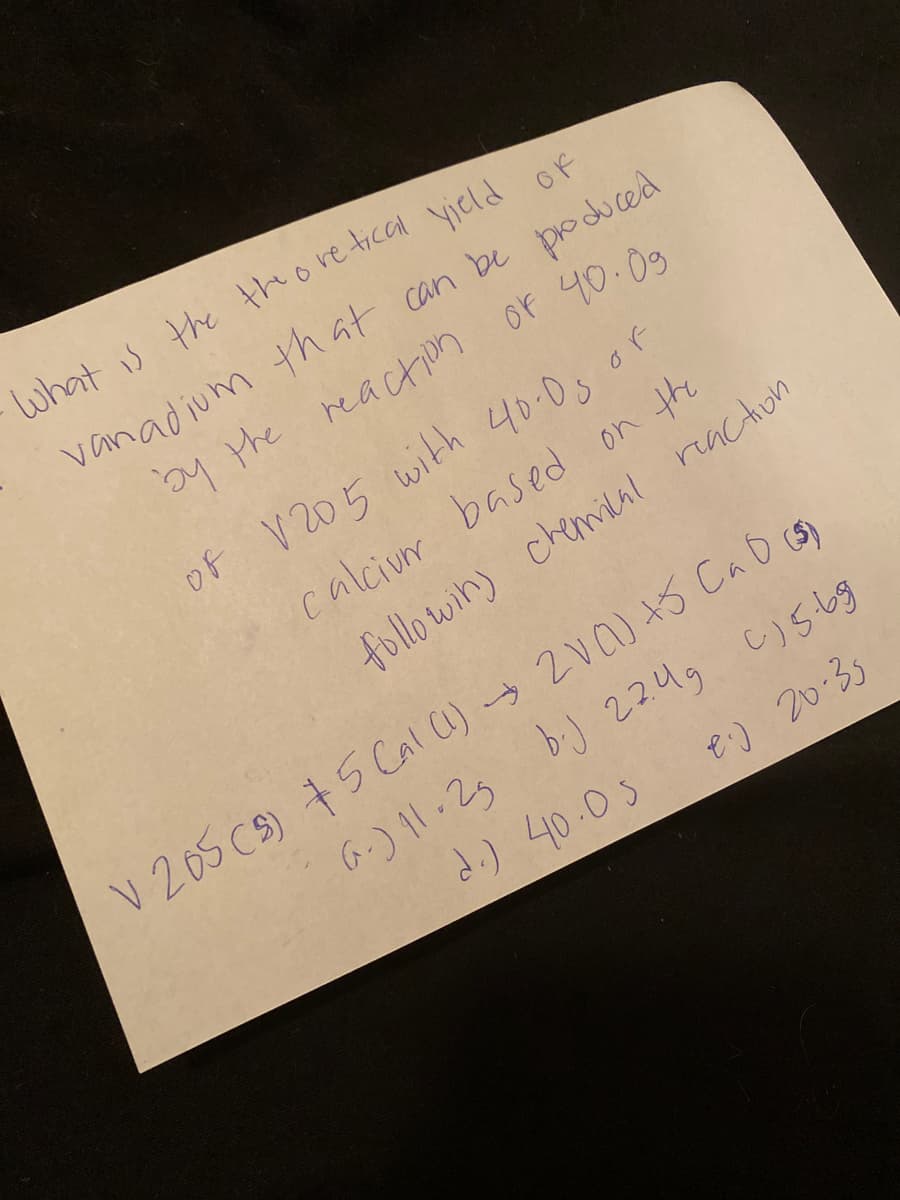 - What is the theoretical yield of
vanadium that can be produced
by the reaction of 40.0g
of V205 with 40.0g of
calcium based on the
following chemical reaction
V205(s) + 5 Cal(l) → 2V(l) + 5 CaO(s)
a.) 11.2g b.) 22.4g c.) 5.6g
d.) 40.0g e.) 20.3g